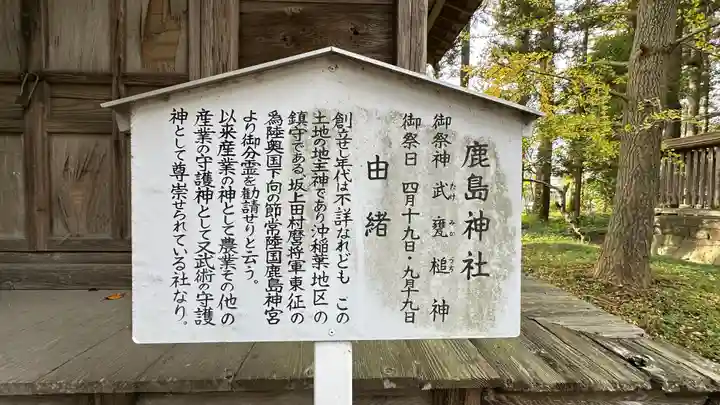 鹿島神社
御祭神 武甕槌神
たけ みか づち
御祭日 四月十九日・九月十九日
由緒
創立せし年代は不詳なれども この
土地の地主神であり沖稲葉地区の
鎮守である、坂上田村麿将軍東征の
為陸奥国下向の節、常陸国鹿島神宮
より御分霊を勧請せりと云う。
以来産業の神として農業その他の
産業の守護神として又武術の守護
神として尊崇せられている社なり。